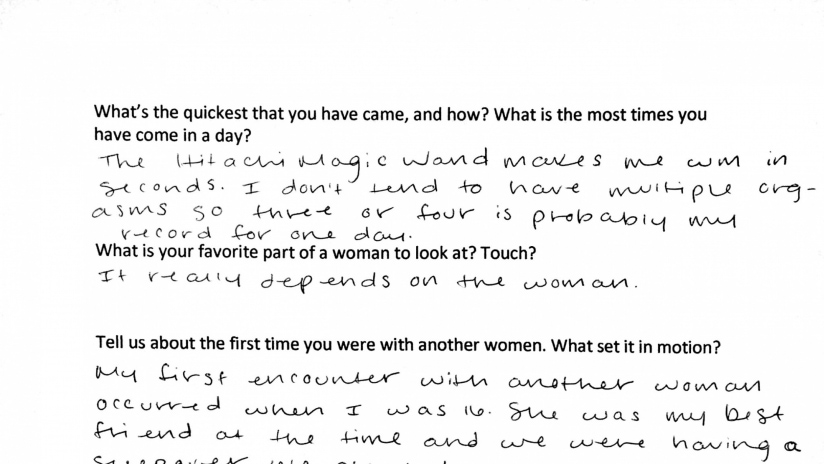 What's the quickest that you have came, and how? What is the most times you
have come in a day?
The Hitachi Magic Wand makes me cum in
seconds. I don't tend to have multiple org-
asms so three or four is probably my
record for one day.
What is your favorite part of a woman to look at? Touch?
It really depends on the woman.
Tell us about the first time you were with another women. What set it in motion?
My first encounter with another woman
occurred when I was 16. She was my best
friend at the time and we were having a